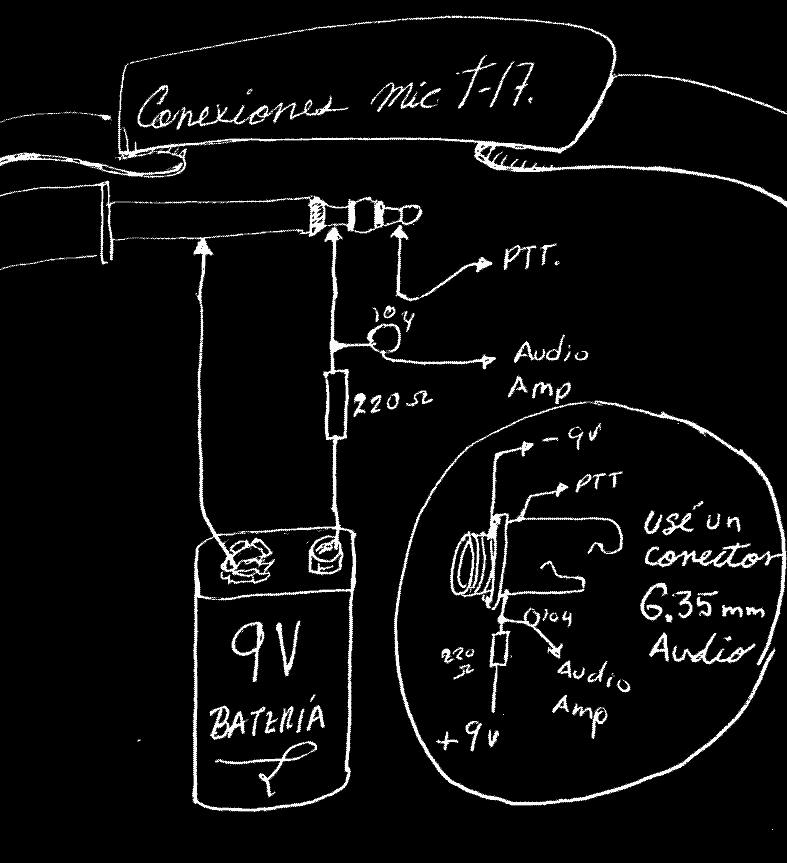 Conexiones mic T-17.
PTT.
104
Audio
Amp
220 Ω
- 9V
PTT
usé un
conector
6.35 mm
Audio
104
220
Ω
Audio
Amp
+9V
9V
BATERÍA